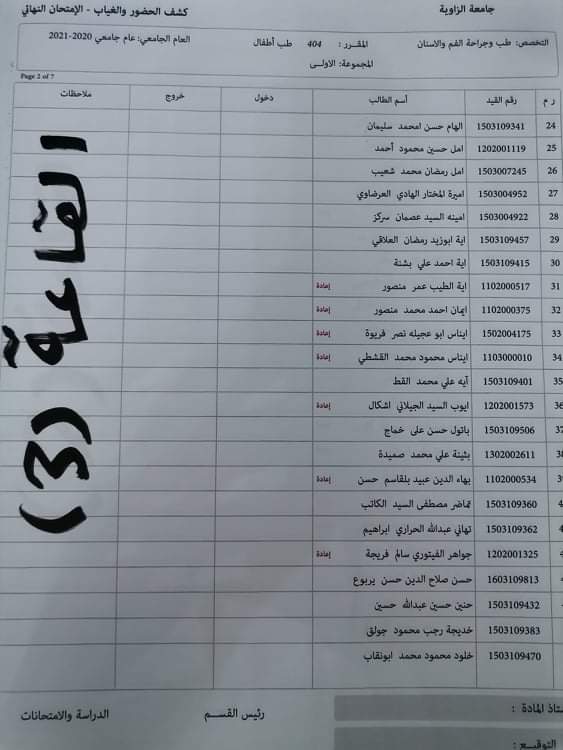 جامعة الزاوية
كشف الحضور والغياب - الإمتحان النهائي
التخصص: طب وجراحة الفم والاسنان
المقـرر : 404 طب أطفال
العام الجامعي: عام جامعي 2020-2021
المجموعة: الاولى
Page 2 of 7
ر م رقم القيد أسم الطالب دخول خروج ملاحظات
24 1503109341 الهام حسن امحمد سليمان
25 1202001119 امل حسين محمود أحمد
26 1503007245 امل رمضان محمد شعيب
27 1503004952 اميرة المختار الهادي العرضاوي
28 1503004922 امينه السيد عصمان سركز
29 1503109457 اية ابوزيد رمضان العلاقي
30 1503109415 اية احمد علي بشنة
31 1102000517 اية الطيب عمر منصور إعادة
32 1102000375 ايمان احمد محمد منصور إعادة
33 1502004175 ايناس ابو عجيله نصر فريوة إعادة
34 1103000010 ايناس محمود محمد القشطي إعادة
35 1503109401 آيه علي محمد القط
36 1202001573 ايوب السيد الجيلاني اشكال إعادة
37 1503109506 باتول حسن على خماج
1302002611 بثينة علي محمد صميدة
1102000534 بهاء الدين عبيد بلقاسم حسن إعادة
1503109360 تماضر مصطفى السيد الكاتب
1503109362 تهاني عبدالله الحراري ابراهيم
1202001325 جواهر الفيتوري سالم فريجة إعادة
1603109813 حسن صلاح الدين حسن يربوع
1503109432 حنين حسين عبدالله حسين
1503109383 خديجة رجب محمود جولق
1503109470 خلود محمود محمد ابونقاب
القاعة (3)
ستاذ المادة :
رئيس القسـم
الدراسة والامتحانات
التوقيـع :